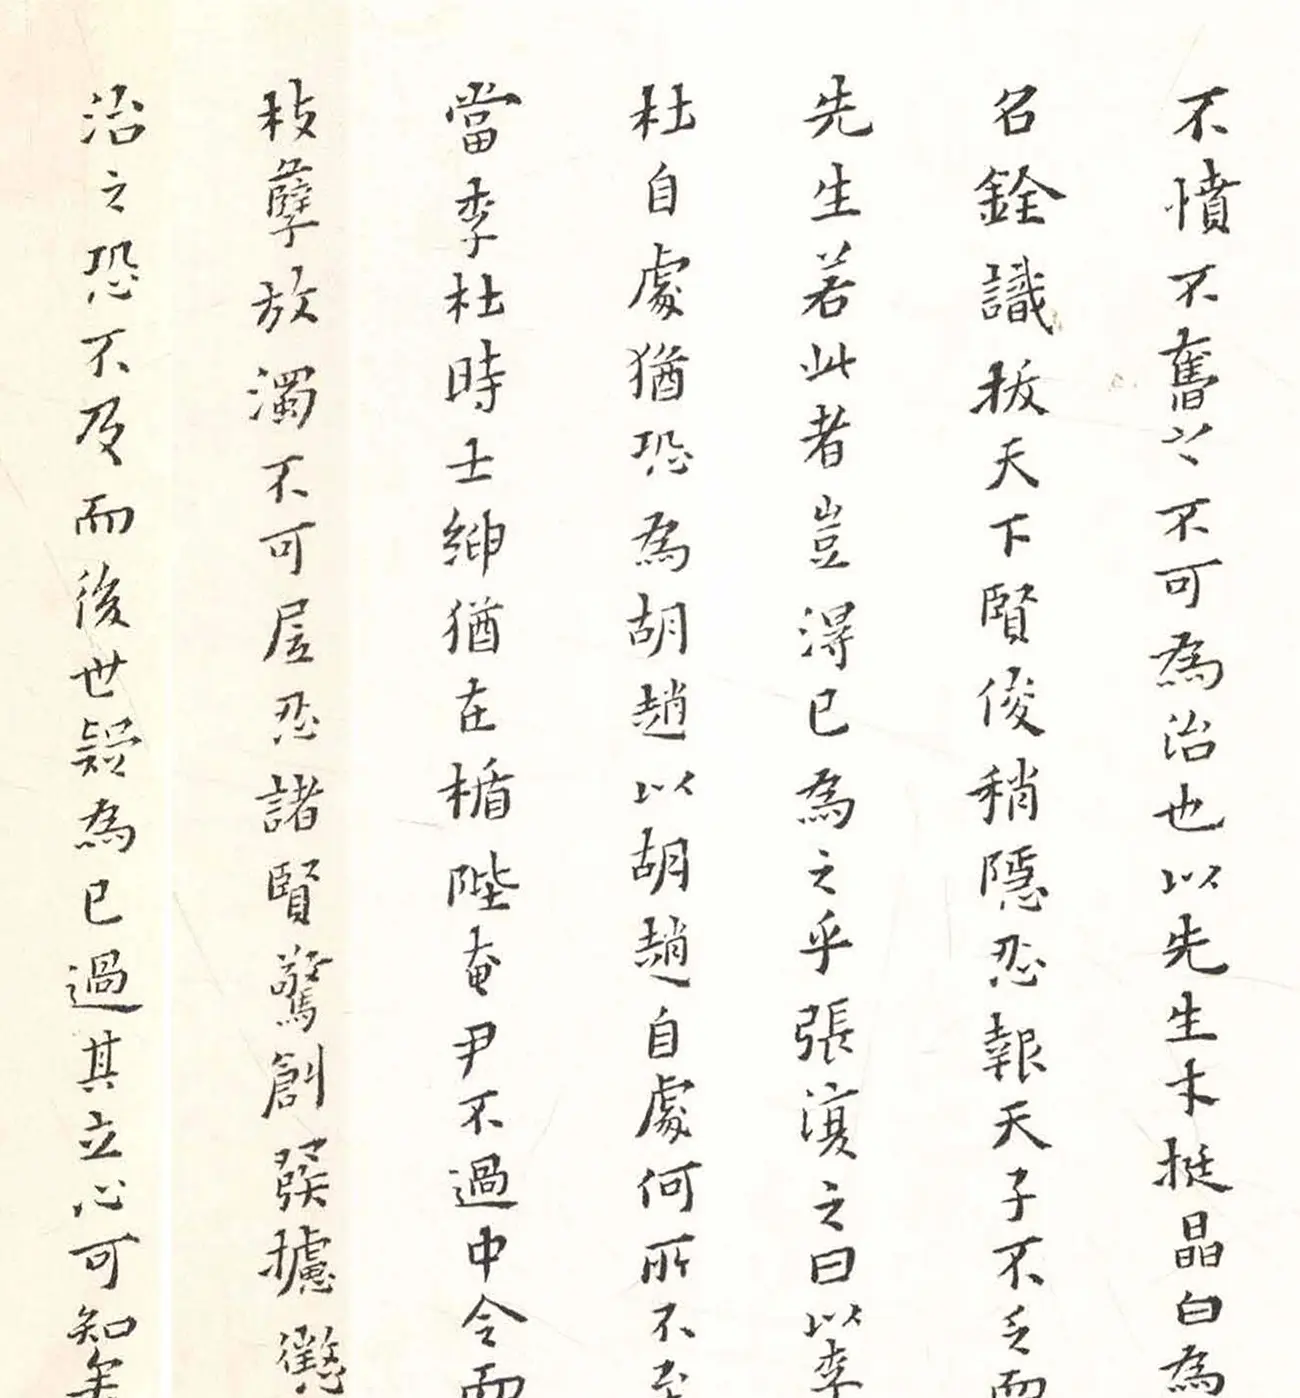 不憤不奮之不可為治也以先生木挺晶白為
名銓識拔天下賢俊稍隱忍報天子不乏而
先生若此者豈得已為之乎張溥之曰以李
杜自處猶恐為胡趙以胡趙自處何所不至
當李杜時士紳猶在楯陛奄尹不過中令而
枝孽放濁不可屋忍諸賢驚創攄懲
治之恐不及而後世疑為已過其立心可知